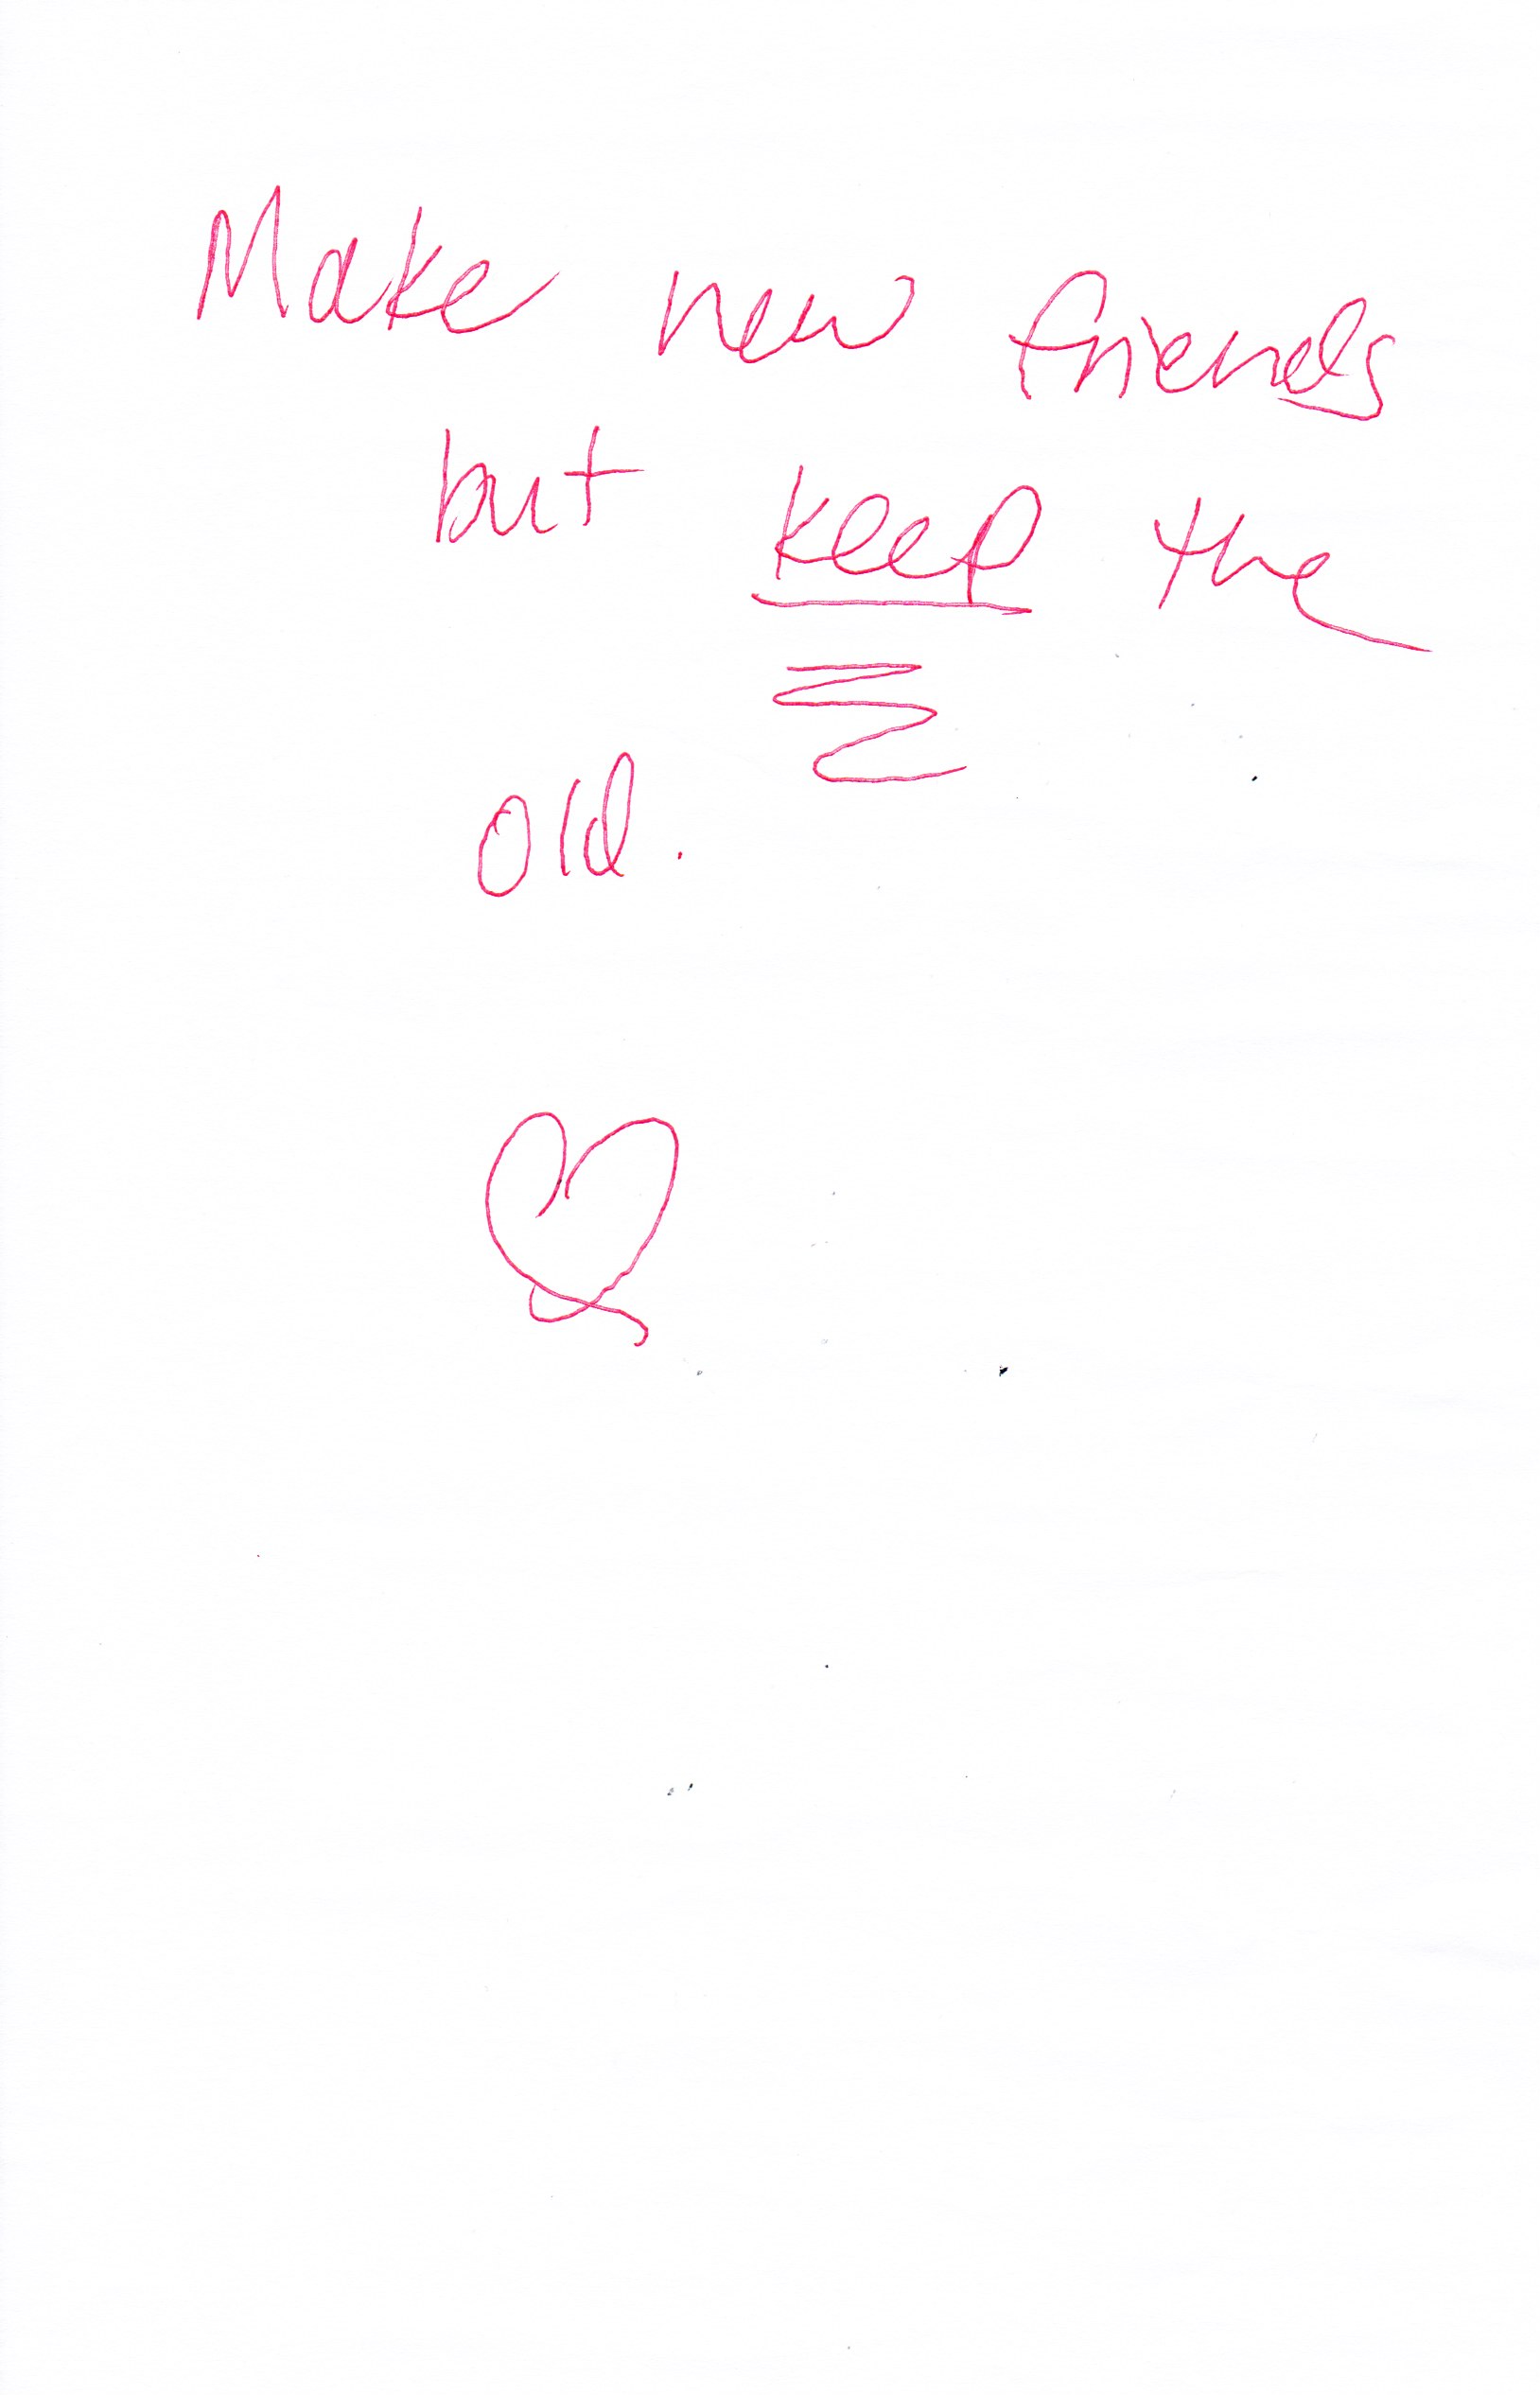 Make new friends
but keep the
old.